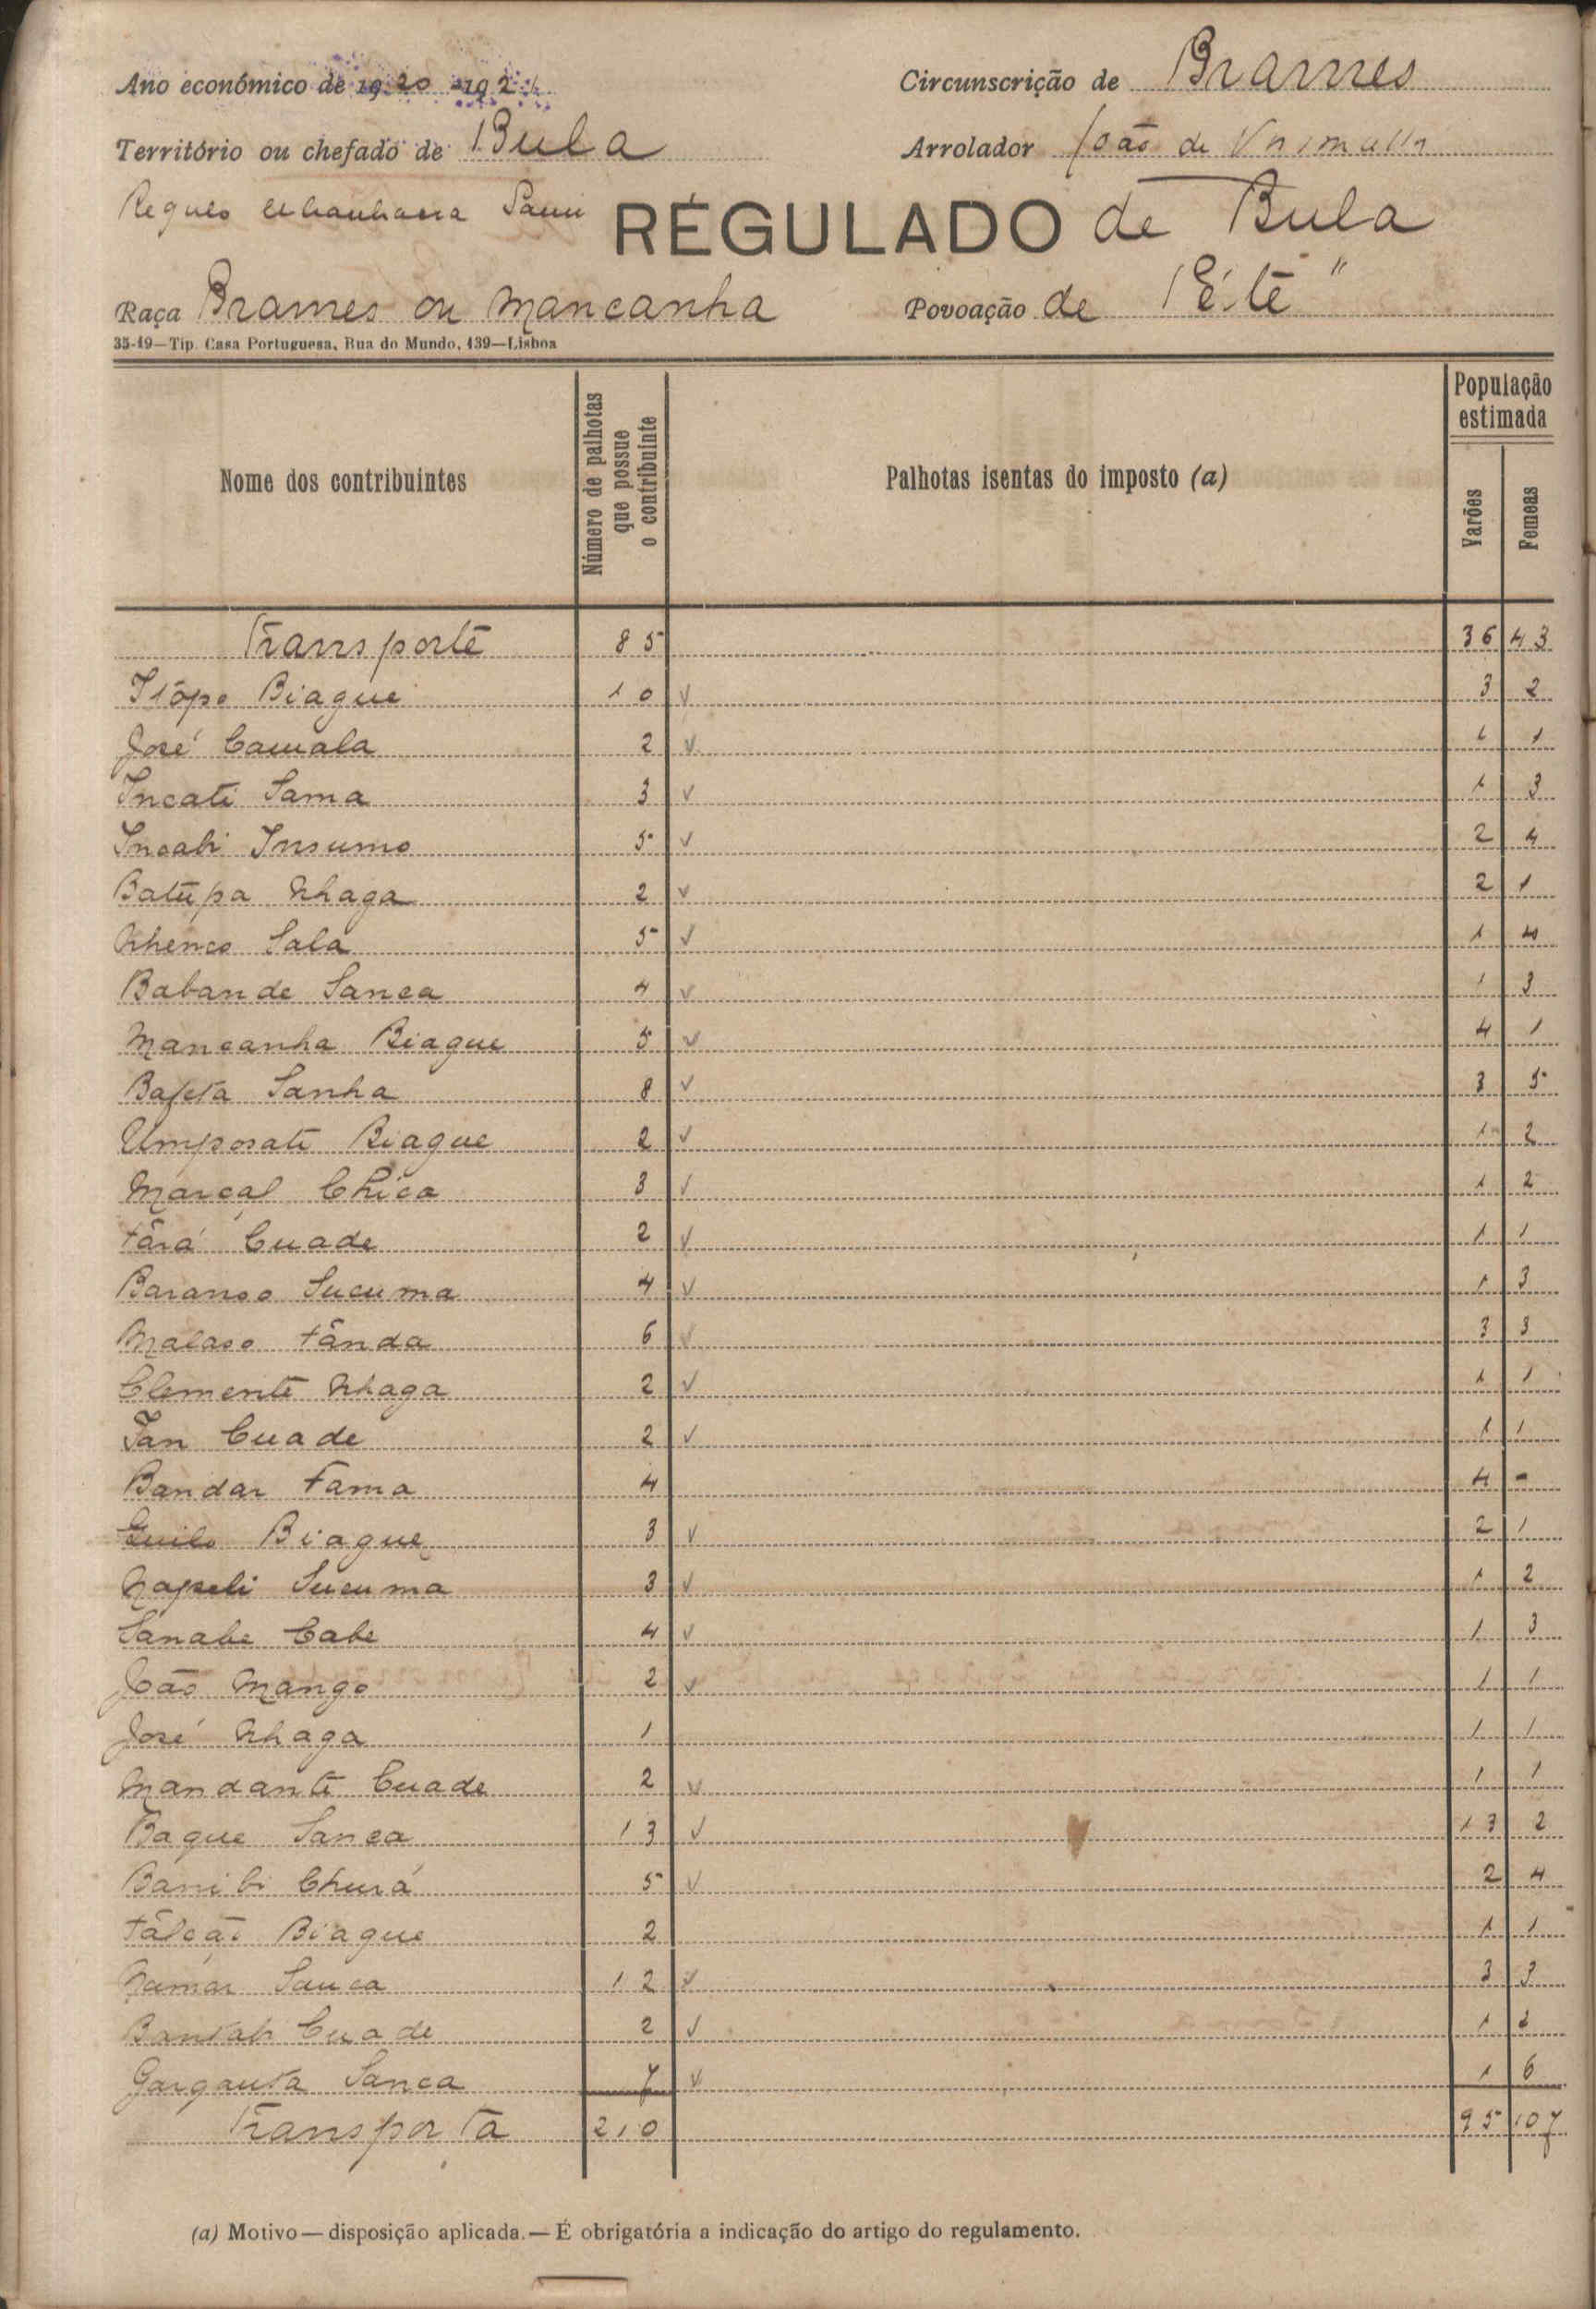 Ano económico de 1920 -1921
Circunscrição de Brames
Território ou chefado de Bula
Arrolador João de
Regulo
REGULADO de Bula
Raça Brames ou Mancanha
Povoação de Pété"
35-19—Tip. Casa Portuguesa, Rua do Mundo, 139—Lisboa
Nome dos contribuintes
Número de palhotas que possue o contribuinte
Palhotas isentas do imposto (a)
População estimada
Varões
Femeas
Transporte 85 36 43
Biague 10 v 3 2
José Camala 2 v 1 1
Incati Sama 3 v 1 3
Incabi Insumo 5 v 2 4
Batúpa Nhaga 2 v 2 1
Nhenco Sala 5 v 1 4
Babande Sanca 4 v 1 3
Mancanha Biague 5 v 4 1
Bafeta Sanha 8 v 3 5
Umposate Biague 2 v 1 2
Marçal Chica 3 v 1 2
Tárá Cuade 2 v 1 1
Baranso Sucuma 4 v 1 3
Malaso Tânda 6 v 3 3
Clemente Nhaga 2 v 1 1
Jan Cuade 2 v 1 1
Bandar Fama 4 4 -
Biague 3 v 2 1
Napeli Sucuma 3 v 1 2
Sanabe Cabe 4 v 1 3
João Mango 2 v 1 1
José Nhaga 1 1 1
Mandante Cuade 2 v 1 1
Baque Sanca 13 v 13 2
Banibi Churá 5 v 2 4
Tálcão Biague 2 1 1
Namar Sanca 12 v 3 3
Cuade 2 v 1 2
Garganta Sanca 7 v 1 6
Transporta 210 95 107
(a) Motivo—disposição aplicada.—É obrigatória a indicação do artigo do regulamento.